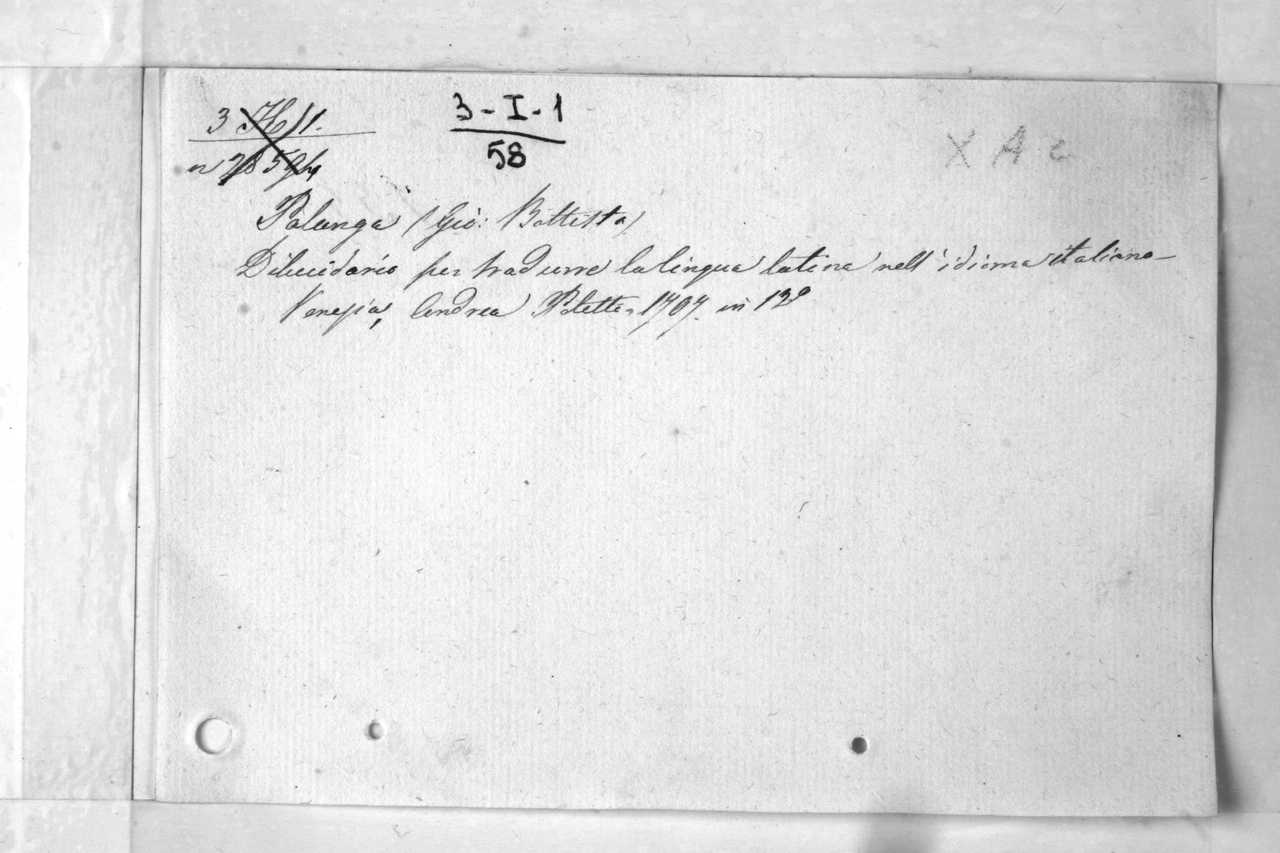 3 H 11. 3-I-1
n 58
Palunga (Gio: Battista)
Dilucidario per tradurre la lingua latina nell'idioma italiano-
Venezia, Andrea Poletti, 1707. in 12º
X A